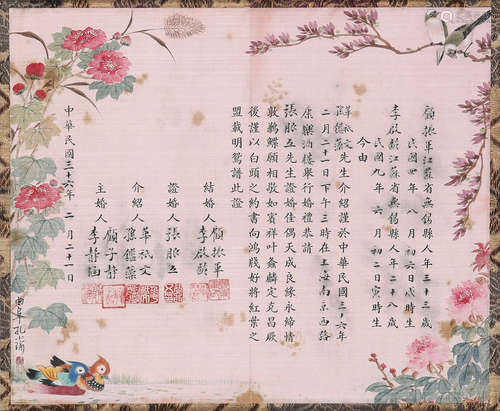 顧振軍江蘇省無錫縣人年三十三歲
民國四年八月初六日戌時生
李啟齡江蘇省無錫縣人年二十八歲
民國九年六月初二日寅時生
今由
華祇文
孫鑑藻先生介紹謹於中華民國三十六年
二月二十一日下午三時在上海南京西路
康樂酒樓舉行婚禮恭請
張服五先生證婚佳偶天成良緣永締情
敦鶼鰈願相敬如賓祥叶螽麟定克昌厥
後謹以白頭之約書向鴻箋好將紅葉之
盟載明鴛譜此證
結婚人 顧振軍
李啟齡
證婚人 張服五
介紹人 華祇文
孫鑑藻
主婚人 顧子靜
李靜涵
中華民國三十六年二月二十一日
曲阜孔小瑜